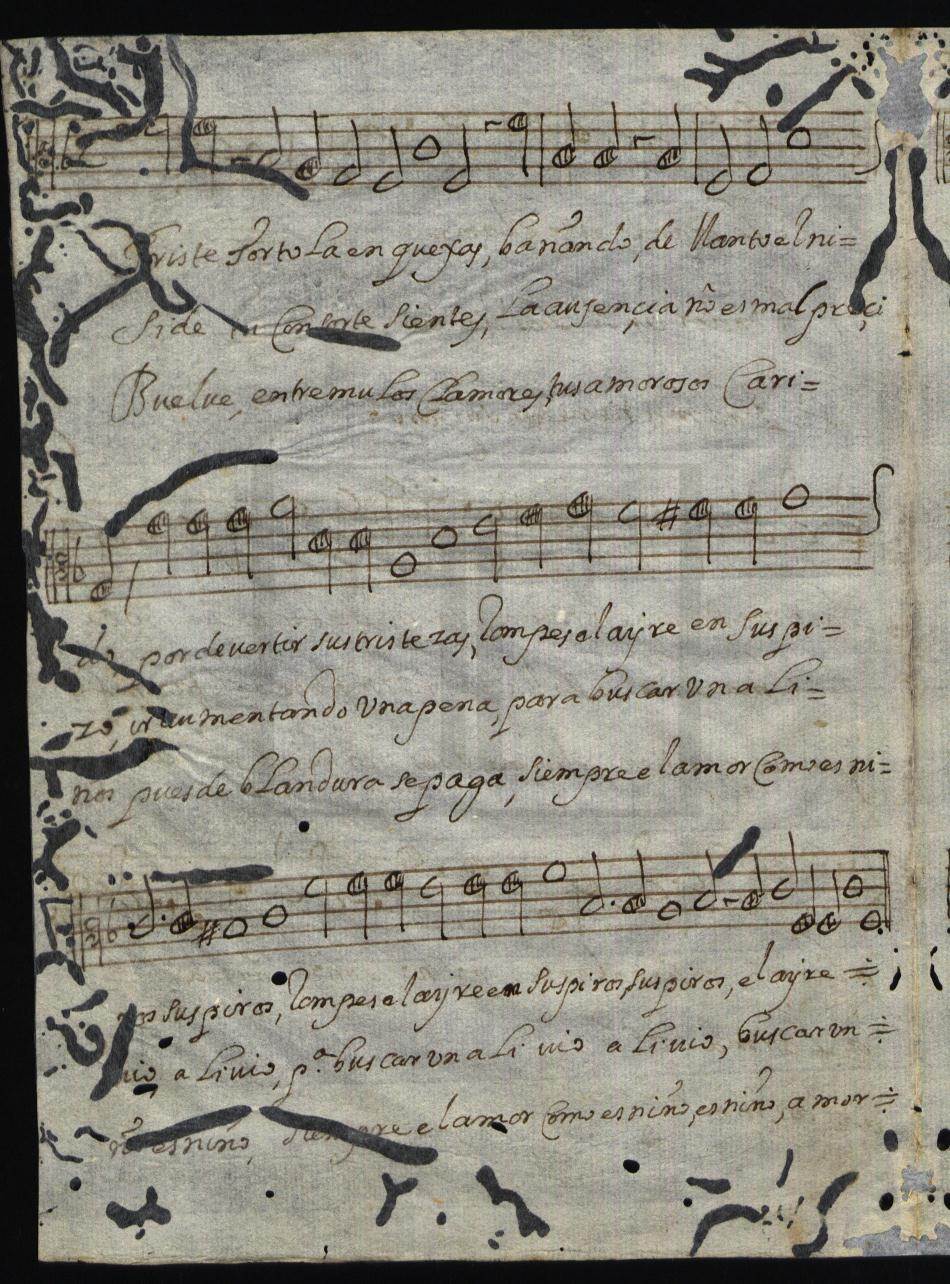 Triste tortola en quexas, bañando, de llanto el ni=
Si de tu Consorte sientes, La ausençia nõ es mal preçi
Buelue, entre mulos Clamores, tus amorosos Cari=
do, por devertir sus tristezas, rompes el ayre en suspi=
zo, ir aumentando Vna pena, para buscar Vn a Li=
nos pues de bLandura se paga, siempre el amor Como es ni=
ros suspiros, rompes el ayre en suspiros, suspiros, el ayre =
uio, a Liuio, p.ª buscar vn a Li uio a Liuio, buscar vn =
ño es niño, siempre el amor Como es niño, es niño, amor =